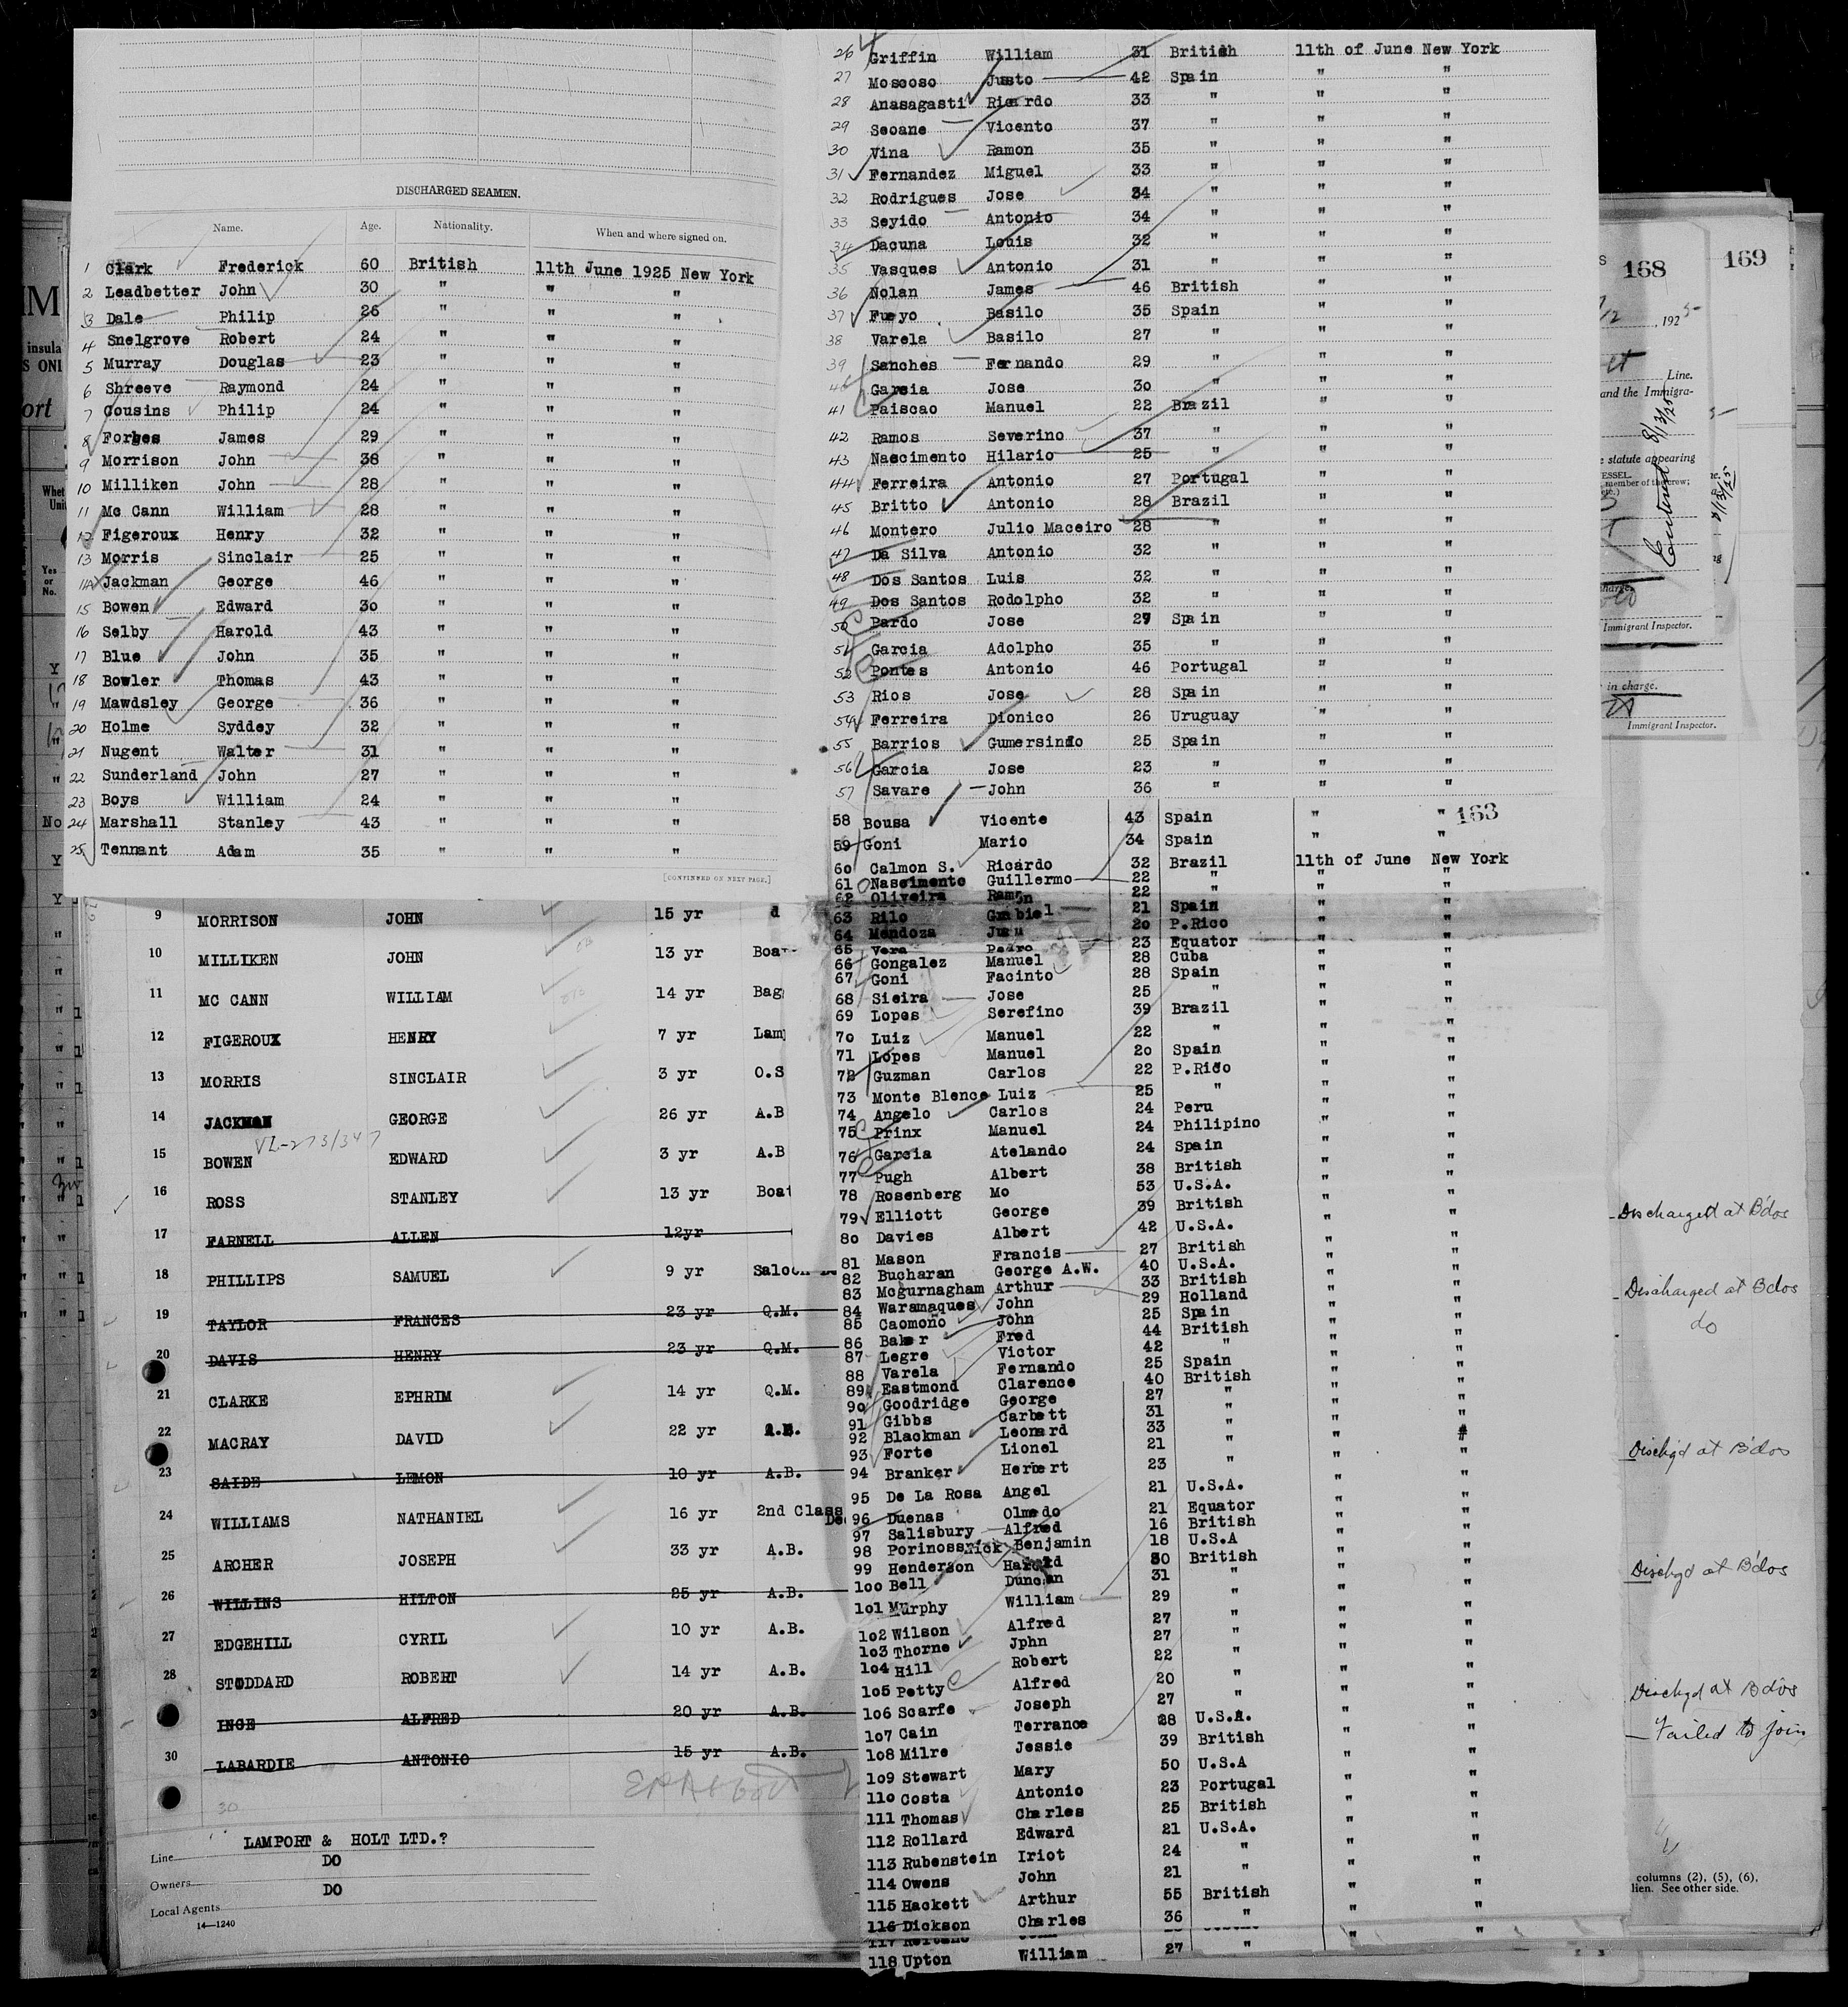 DISCHARGED SEAMEN.
Name. Age. Nationality. When and where signed on.
1 Clark Frederick 60 British 11th June 1925 New York
2 Leadbetter John 30 " " "
3 Dale Philip 26 " " "
4 Snelgrove Robert 24 " " "
5 Murray Douglas 23 " " "
6 Shreeve Raymond 24 " " "
7 Cousins Philip 24 " " "
8 Forbes James 29 " " "
9 Morrison John 38 " " "
10 Milliken John 28 " " "
11 Mc Cann William 28 " " "
12 Figeroux Henry 32 " " "
13 Morris Sinclair 25 " " "
14 Jackman George 46 " " "
15 Bowen Edward 30 " " "
16 Selby Harold 43 " " "
17 Blue John 35 " " "
18 Bowler Thomas 43 " " "
19 Mawdsley George 36 " " "
20 Holme Syddey 32 " " "
21 Nugent Walter 31 " " "
22 Sunderland John 27 " " "
23 Boys William 24 " " "
24 Marshall Stanley 43 " " "
25 Tennant Adam 35 " " "
[CONTINUED ON NEXT PAGE.]
26 Griffin William 31 British 11th of June New York
27 Moscoso Justo 42 Spain " "
28 Anasagasti Ricardo 33 " " "
29 Seoane Vicento 37 " " "
30 Vina Ramon 35 " " "
31 Fernandez Miguel 33 " " "
32 Rodrigues Jose 34 " " "
33 Seyido Antonio 34 " " "
34 Dacuna Louis 32 " " "
35 Vasques Antonio 31 " " "
36 Nolan James 46 British " "
37 Fueyo Basilo 35 Spain " "
38 Varela Basilo 27 " " "
39 Sanches Fernando 29 " " "
40 Garcia Jose 30 " " "
41 Paiscao Manuel 22 Brazil " "
42 Ramos Severino 37 " " "
43 Nascimento Hilario 25 " " "
44 Ferreira Antonio 27 Portugal " "
45 Britto Antonio 28 Brazil " "
46 Montero Julio Maceiro 28 " " "
47 Da Silva Antonio 32 " " "
48 Dos Santos Luis 32 " " "
49 Dos Santos Rodolpho 32 " " "
50 Pardo Jose 27 Spain " "
51 Garcia Adolpho 35 " " "
52 Pontes Antonio 46 Portugal " "
53 Rios Jose 28 Spain " "
54 Ferreira Dionico 26 Uruguay " "
55 Barrios Gumersindo 25 Spain " "
56 Garcia Jose 23 " " "
57 Savare John 36 " " "
163
58 Bousa Vicente 43 Spain " "
59 Goni Mario 34 Spain " "
60 Calmon S. Ricardo 32 Brazil 11th of June New York
61 Nascimento Guillermo 22 " " "
62 Oliveira Ramon 22 " "
63 Rilo Grabiel 21 Spain " "
64 Mendoza 20 P.Rico " "
65 Vera Pedro 23 Equator " "
66 Gongalez Manuel 28 Cuba " "
67 Goni Facinto 28 Spain " "
68 Sieira Jose 25 " " "
69 Lopes Serefino 39 Brazil " "
70 Luiz Manuel 22 " " "
71 Lopes Manuel 20 Spain " "
72 Guzman Carlos 22 P.Rico " "
73 Monte Blence Luiz 25 " " "
74 Angelo Carlos 24 Peru " "
75 Prinx Manuel 24 Philipino " "
76 Garcia Atelando 24 Spain " "
77 Pugh Albert 38 British " "
78 Rosenberg Mo 53 U.S.A. " "
79 Elliott George 39 British " "
80 Davies Albert 42 U.S.A. " "
81 Mason Francis 27 British " "
82 Bucharan George A.W. 40 U.S.A. " "
83 Mcgurnagham Arthur 33 British " "
84 Waramaques John 29 Holland " "
85 Caomono John 25 Spain " "
86 Baker Fred 44 British " "
87 Legre Victor 42 " " "
88 Varela Fernando 25 Spain " "
89 Eastmond Clarence 40 British " "
90 Goodridge George 27 " " "
91 Gibbs Carbett 31 " " "
92 Blackman Leonard 33 " " "
93 Forte Lionel 21 " " "
94 Branker Herbert 23 " " "
95 De La Rosa Angel 21 U.S.A. " "
96 Duenas Olmedo 21 Equator " "
97 Salisbury Alfred 16 British " "
98 Porinossnick Benjamin 18 U.S.A " "
99 Henderson Harold 30 British " "
100 Bell Duncan 31 " " "
101 Murphy William 29 " " "
102 Wilson Alfred 27 " " "
103 Thorne Jphn 27 " " "
104 Hill Robert 22 " " "
105 Petty Alfred 20 " " "
106 Scarfe Joseph 27 " " "
107 Cain Terrance 28 U.S.A. " "
108 Milre Jessie 39 British " "
109 Stewart Mary 50 U.S.A " "
110 Costa Antonio 23 Portugal " "
111 Thomas Charles 25 British " "
112 Rollard Edward 21 U.S.A. " "
113 Rubenstein Iriot 24 " " "
114 Owens John 21 " " "
115 Hackett Arthur 55 British " "
116 Dickson Charles 36 " " "
118 Upton William 27 "
9 MORRISON JOHN 15 yr
10 MILLIKEN JOHN 13 yr Boa
11 MC CANN WILLIAM 14 yr Bag
12 FIGEROUX HENRY 7 yr Lam
13 MORRIS SINCLAIR 3 yr O.S
14 JACKMAN GEORGE 26 yr A.B
VL-273/347
15 BOWEN EDWARD 3 yr A.B
16 ROSS STANLEY 13 yr Boat
17 FARNELL ALLEN 12yr
18 PHILLIPS SAMUEL 9 yr Saloon
19 TAYLOR FRANCES 23 yr Q.M.
20 DAVIS HENRY 23 yr Q.M.
21 CLARKE EPHRIM 14 yr Q.M.
22 MACRAY DAVID 22 yr A.B.
23 SAIDE LEMON 10 yr A.B.
24 WILLIAMS NATHANIEL 16 yr 2nd Class
25 ARCHER JOSEPH 33 yr A.B.
26 WILLINS HILTON 25 yr A.B.
27 EDGEHILL CYRIL 10 yr A.B.
28 STODDARD ROBERT 14 yr A.B.
INCE ALFRED 20 yr A.B.
30 LABARDIE ANTONIO 15 yr A.B.
30
Line LAMPORT & HOLT LTD.?
Owners DO
Local Agents DO
14—1240
168
169
, 1925
Line.
and the Immigra-
Entered 8/13/25
e statute appearing
ESSEL.
member of the crew;
etc.)
Immigrant Inspector.
in charge.
Immigrant Inspector.
Discharged at B'dos
Discharged at Bdos
do
Dischgd at B'dos
Dischgd at B'dos
Dischgd at B'dos
Failed to join
columns (2), (5), (6),
lien. See other side.
insula
S ONL
ort
Yes
or
No.